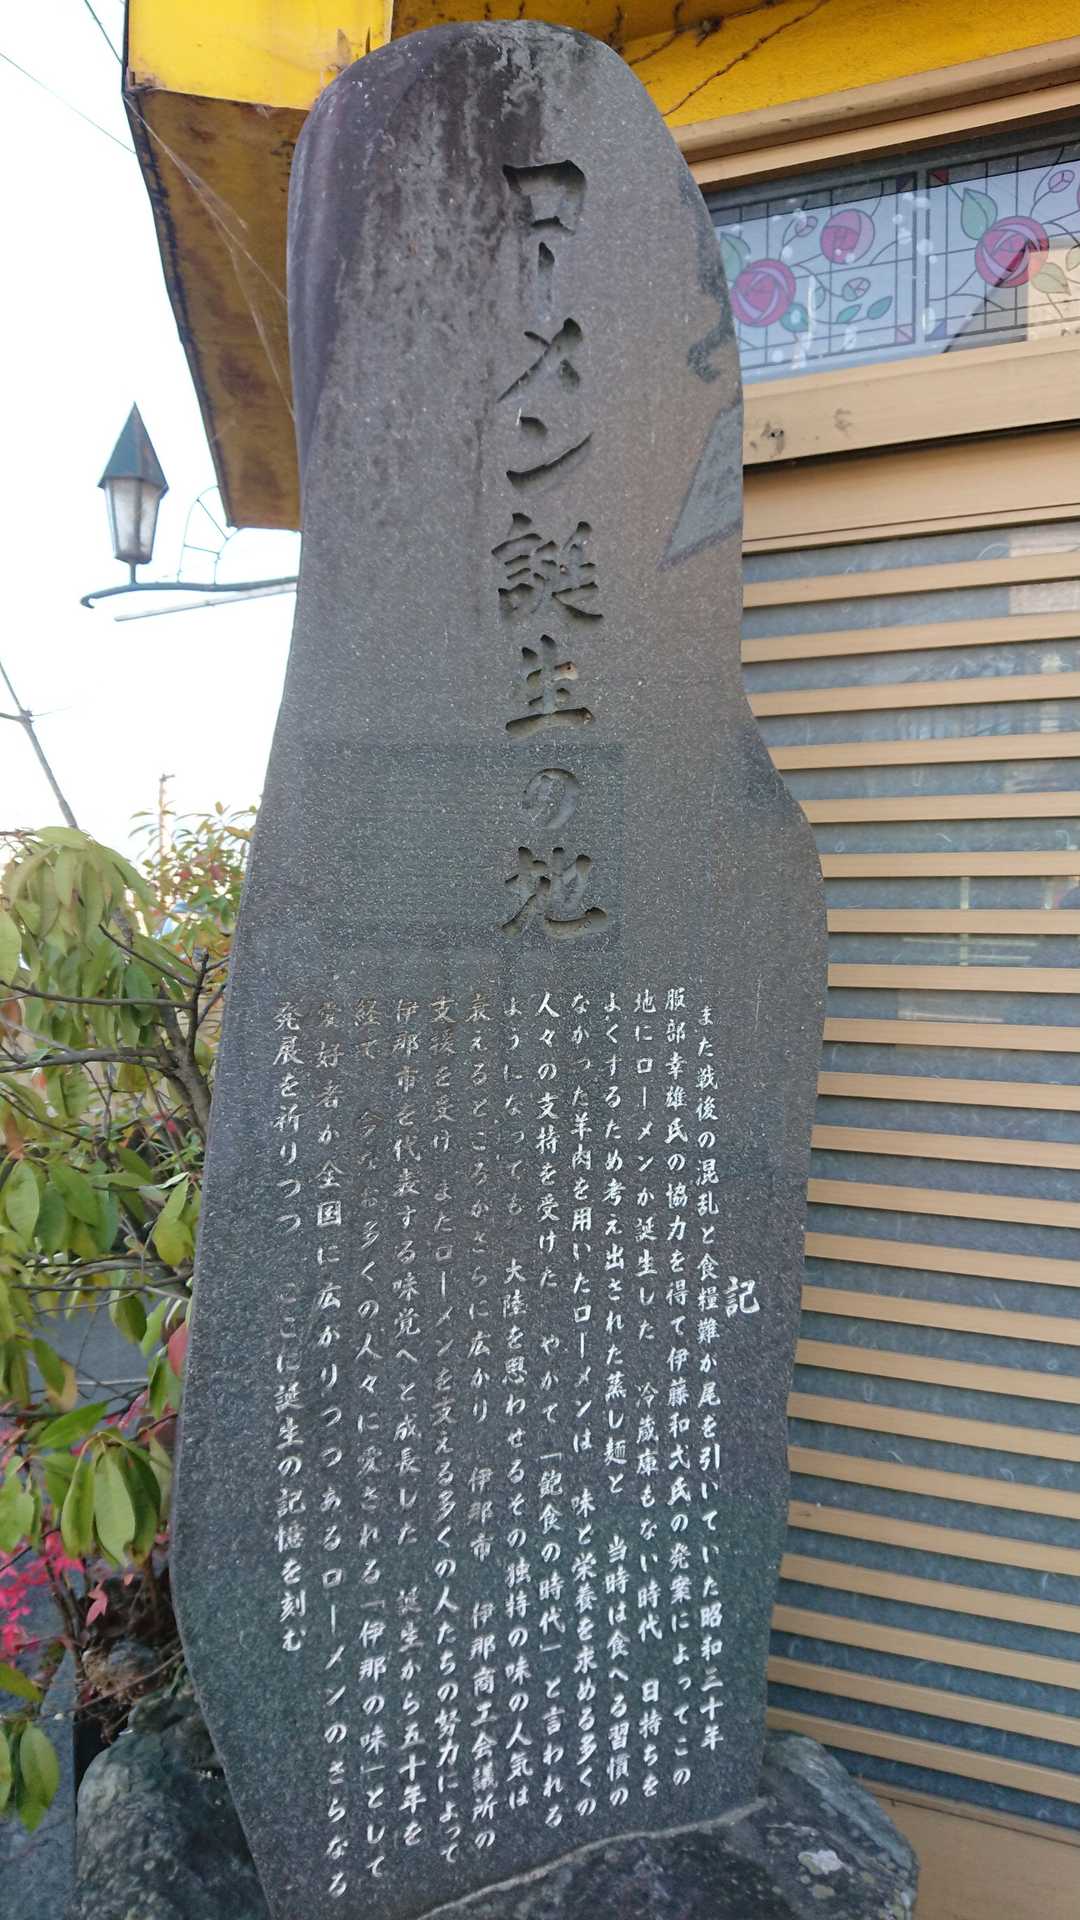 ローメン誕生の地
記
まだ戦後の混乱と食糧難が尾を引いていた昭和三十年
服部幸雄氏の協力を得て伊藤和弌氏の発案によってこの
地にローメンが誕生した 冷蔵庫もない時代 日持ちを
よくするため考え出された蒸し麺と 当時は食べる習慣の
なかった羊肉を用いたローメンは 味と栄養を求める多くの
人々の支持を受けた やがて「飽食の時代」と言われる
ようになっても 大陸を思わせるその独特の味の人気は
衰えるどころかさらに広がり 伊那市 伊那商工会議所の
支援を受け またローメンを支える多くの人たちの努力によって
伊那市を代表する味覚へと成長した 誕生から五十年を
経て 今なお多くの人々に愛される「伊那の味」として
愛好者が全国に広がりつつあるローメンのさらなる
発展を祈りつつ ここに誕生の記憶を刻む